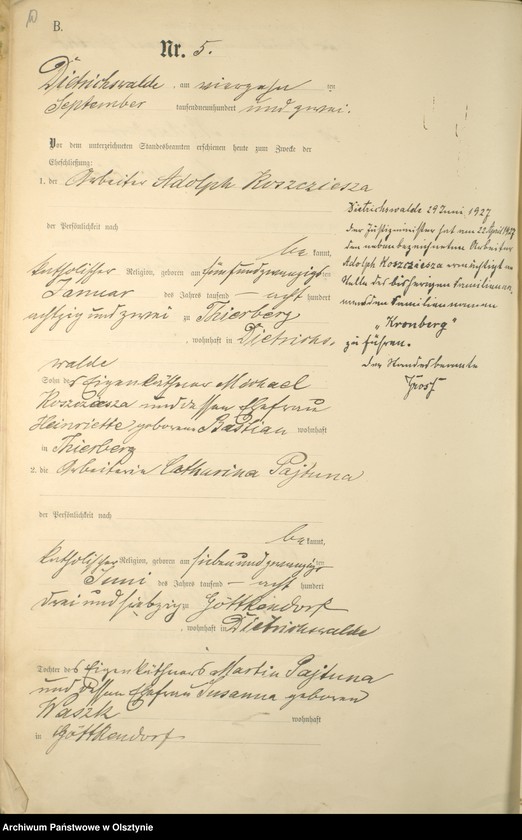 B.
Nr. 5.
Dietrichswalde, am vierzehn ten
September tausendneunhundert und zwei.
Vor dem unterzeichneten Standesbeamten erschienen heute zum Zwecke der
Eheschließung:
1. der Arbeiter Adolph Koszcziesza
der Persönlichkeit nach
be kannt,
katholischer Religion, geboren am fünfundzwanzigsten
Januar des Jahres tausend – acht hundert
achtzig und zwei zu Thierberg
, wohnhaft in Dietrichs,
walde
Sohn des Eigenkäthner Michael
Koszcziesza und dessen Ehefrau
Heinriette geborene Bastian wohnhaft
in Thierberg
2. die Arbeiterin Catharina Pajtuna
der Persönlichkeit nach
be kannt,
katholischer Religion, geboren am siebenundzwanzigsten
Juni des Jahres tausend – acht hundert
drei und siebzig zu Göttkendorf
, wohnhaft in Dietrichswalde
Tochter des Eigenkäthners Martin Pajtuna
und dessen Ehefrau Susanna geboren
Waszk wohnhaft
in Göttkendorf
Dietrichswalde 29 Juni 1927
Der Justizminister hat am 22 April 1927
den nebenbezeichneten Arbeiter
Adolph Koszcziesza ermächtigt an
Stelle des bisherigen Familienna,
mens den Familiennamen
„Kronberg"
zu führen.
Der Standesbeamte
Archiwum Państwowe w Olsztynie